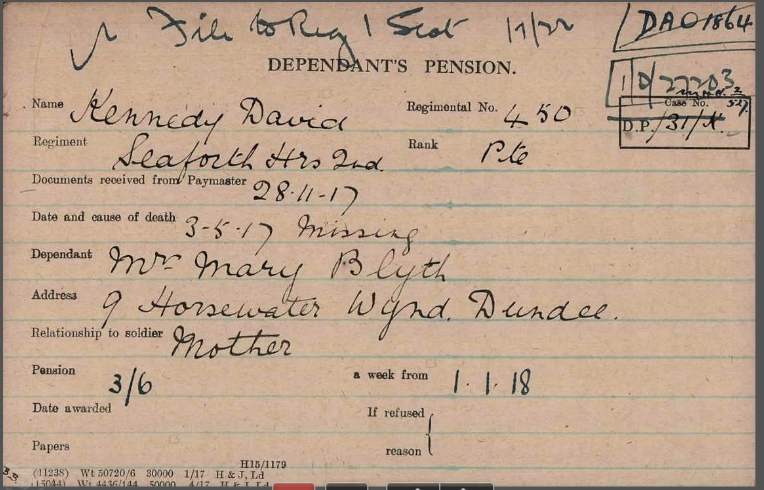 File to Reg 1 Scot 17/22
DAO1864
DEPENDANT'S PENSION.
1 D 27203
Name Kennedy David Regimental No. 450
Case No.
D.P./31/K.
Regiment Seaforth Hrs 2nd. Rank Pte
Documents received from Paymaster 28-11-17
Date and cause of death 3-5-17 Missing
Dependant Mrs Mary Blyth
Address 9 Horsewater Wynd. Dundee.
Relationship to soldier Mother
Pension 3/6 a week from 1.1.18
Date awarded If refused
Papers reason
H15/1179
(41238) Wt 50720/6 30000 1/17 H & J, Ld
(15044) Wt 4436/144 50000 4/17 H & J Ld